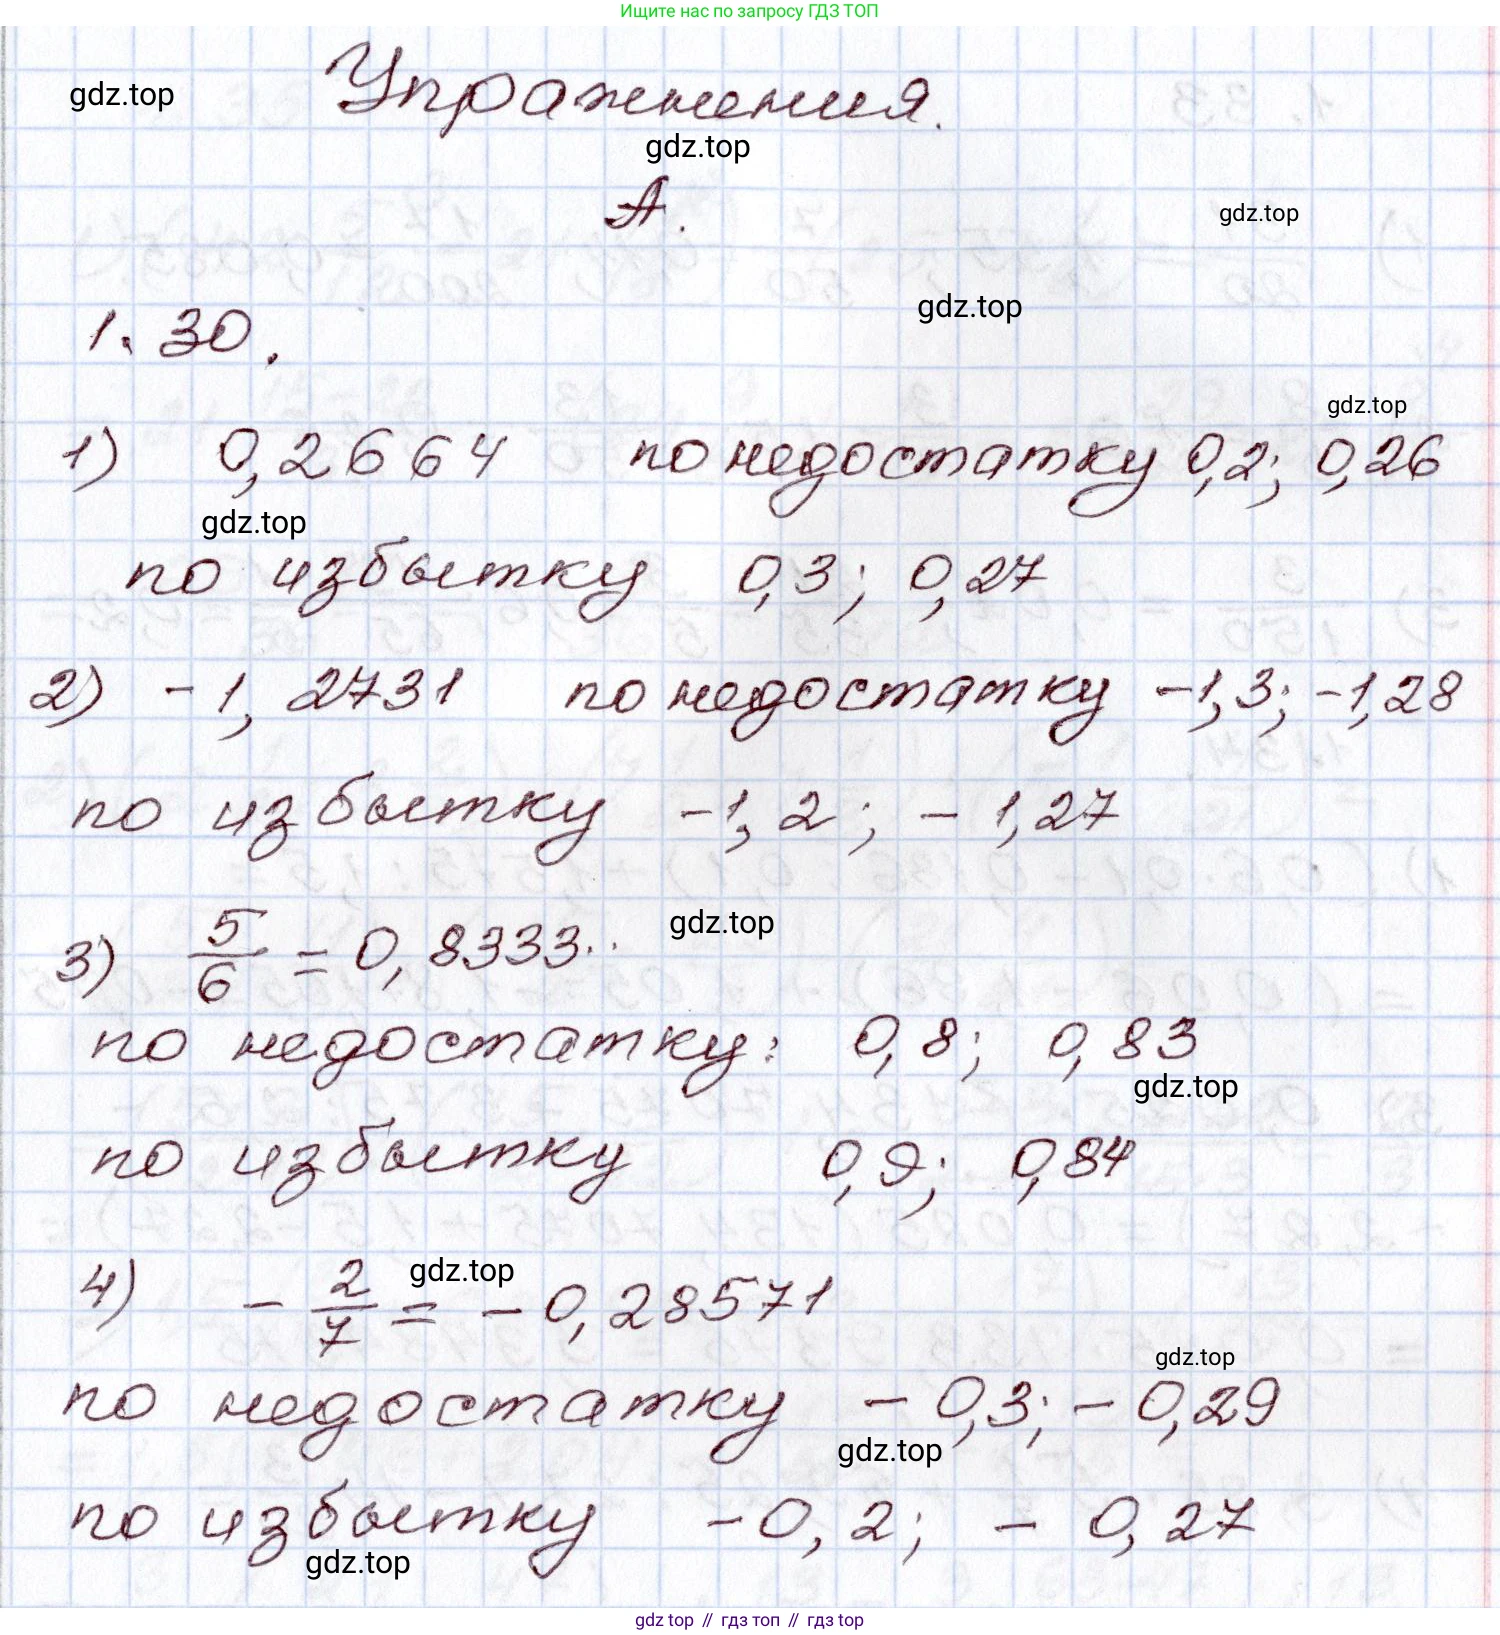 Ищите нас по запросу ГДЗ ТОП
Упражнения.
gdz.top
gdz.top
А.
gdz.top
gdz.top
1.30.
gdz.top
1) 0,2664 по недостатку 0,2; 0,26
gdz.top
по избытку 0,3; 0,27
2) -1,2731 по недостатку -1,3; -1,28
по избытку -1,2; -1,27
gdz.top
3) 5/6 = 0,8333..
по недостатку: 0,8; 0,83
gdz.top
по избытку 0,9; 0,84
gdz.top
4) - 2/7 = -0,28571
gdz.top
по недостатку -0,3; -0,29
gdz.top
по избытку -0,2; -0,27
gdz.top
gdz top // гдз топ // гдз top